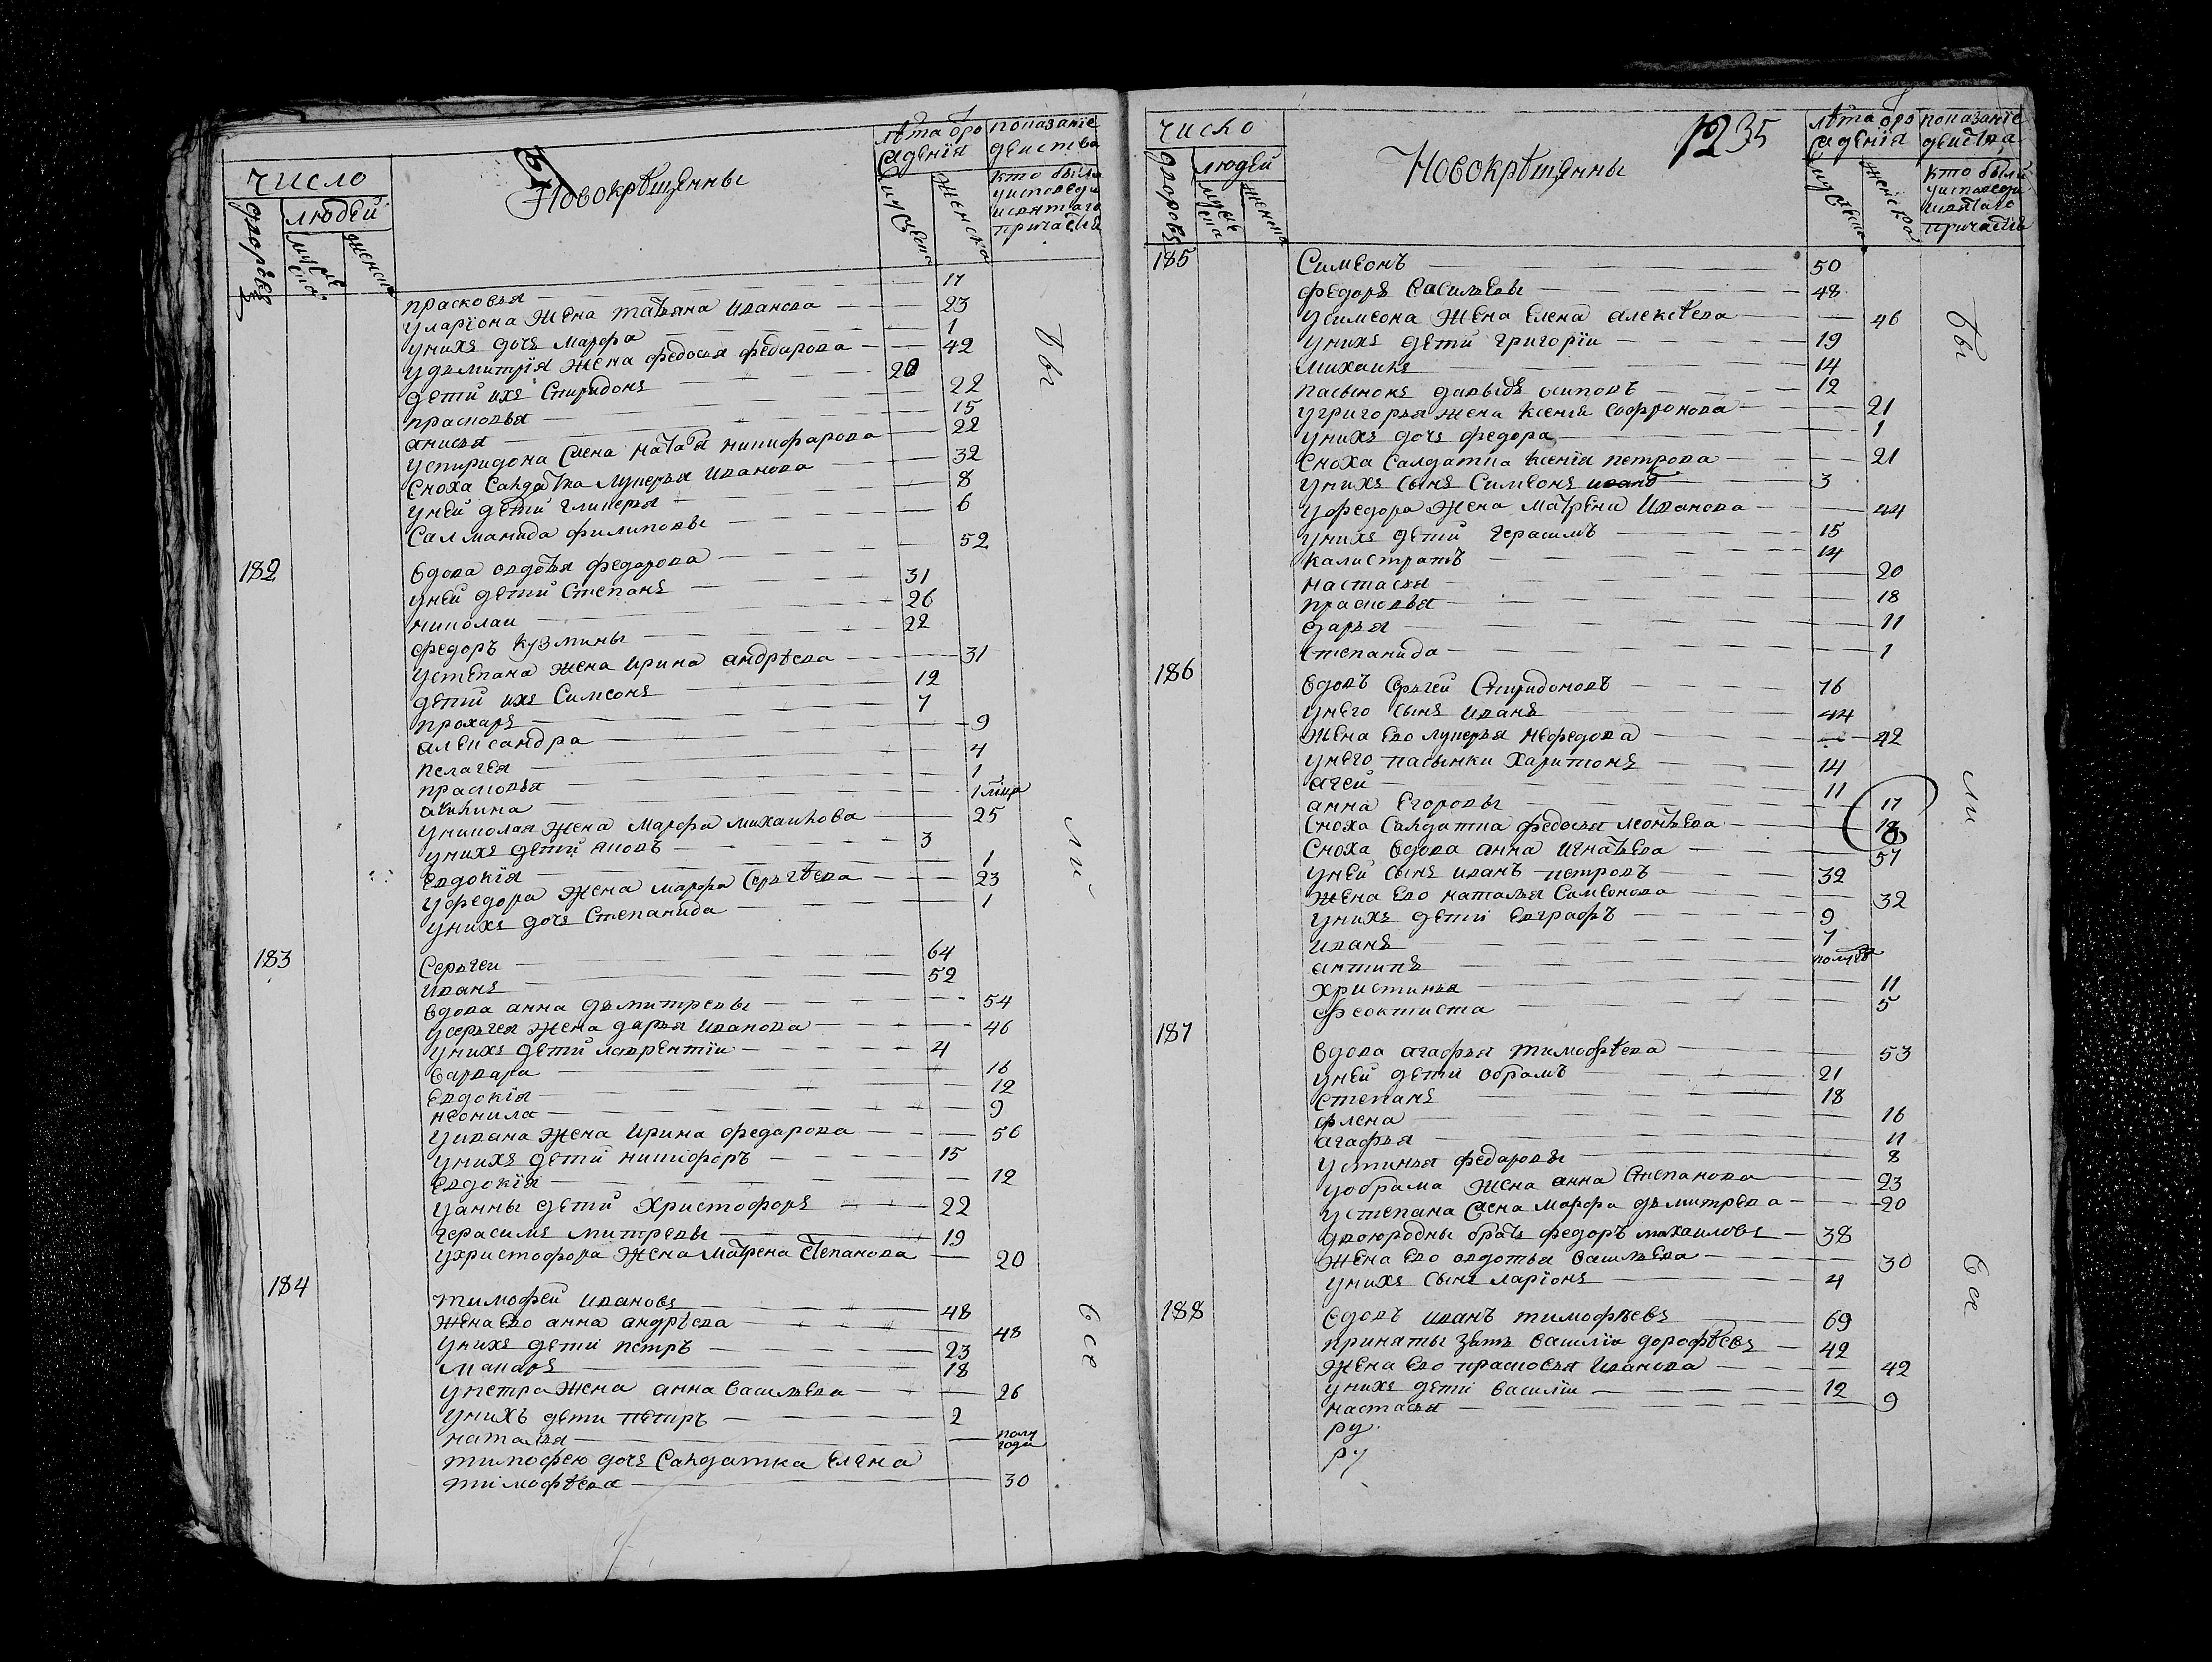 число
дворовъ
людей
мужеска
женска
Новокрѣщенны
лѣта рождения
мужеска
женска
показание действа
кто были
у исповеди
и святаго
причастия
прасковья — 17
у лариона жена татьяна иванова — 23
у нихъ дочь марфа — 1
у дьмитрия жена федосья федарова — 42
дети ихъ Спиридонъ — 20
прасковья — 22
анисья — 15
у спиридона жена наталья никифарова — 22
Сноха Салдатка лукерья иванова — 32
у ней дети гликерья — 8
Саламанида филиповы — 6
182 вдова овдотья федарова — 52
у ней дети Степанъ — 31
николаи — 26
федоръ кузмины — 22
у степана жена ирина андрѣева — 31
дети ихъ Симеонъ — 12
прохаръ — 7
александра — 9
пелагея — 4
прасковья — 1
акилина — 1
у николая жена марфа михаилова — 25
у нихъ дети яковъ — 3
Евдокїя — 1
у федора жена марфа Серьгѣева — 23
у нихъ дочь Степанида — 1
183 Серьгеи — 64
иванъ — 52
вдова анна дьмитревы — 54
у серьгея жена дарья иванова — 46
у нихъ дети лаврентїи — 4
варвара — 16
Евдокїя — 12
неонила — 9
у ивана жена ирина федарова — 56
у нихъ дети никифоръ — 15
Евдокїя — 12
у анны дети Христофоръ — 22
герасимъ митревы — 19
у христофора жена матрена степанова — 20
184 тимофеи ивановъ — 48
жена ево анна андрѣева — 48
у нихъ дети петръ — 23
макаръ — 18
у петра жена анна васильева — 26
у нихъ дети петръ — 2
наталья — полугоди
тимофею дочь Салдатка елена
тимофѣева — 30
бы
ли
все
число
дворовъ
людей
мужеска
женска
Новокрѣщенны
1235
лѣта рождения
мужеска
женска
показание действа
кто были
у исповеди
и святаго
причастия
185 Симеонъ — 50
федоръ васильевы — 48
у симеона жена елена алексѣева — 46
у нихъ дети григории — 19
михаилъ — 14
пасынокъ давыдъ осиповъ — 12
у григорья жена ксения софронова — 21
у нихъ дочь федора — 1
сноха салдатка ксения петрова — 21
у нихъ сынъ Симеонъ — 3
у федора жена матрена иванова — 44
у нихъ дети герасимъ — 15
калистратъ — 14
настасья — 20
прасковья — 18
дарья — 11
степанида — 1
186 вдовъ Серьгеи Спиридоновъ — 76
у него сынъ иванъ — 44
жена ево лукерья нефедова — 42
у него пасынки харитонъ — 14
агеи — 11
анна егоровы — 17
сноха салдатка федосья леонтьева
сноха вдова анна игнатьева — 57
у ней сынъ иванъ петровъ — 32
жена ево наталья Симеонова — 32
у нихъ дети евграфъ — 9
иванъ — 7
антипъ — полугоду
христинья — 11
феоктиста — 5
187 вдова агафья тимофѣева — 53
у ней дети обрамъ — 21
степанъ — 18
флена — 16
агафья — 11
устинья федаровы — 8
у обрама жена анна степанова — 23
у степана жена марфа дьмитрева — 20
двоюродны братъ федоръ михаиловъ — 38
жена ево овдотья васильева — 30
у нихъ сынъ ларїонъ — 4
188 вдовъ иванъ тимофѣевъ — 69
принаты зять василїи дорофѣевъ — 42
жена ево прасковья иванова — 42
у нихъ дети василїи — 12
настасья — 9
ру
ру
бы
ли
вса